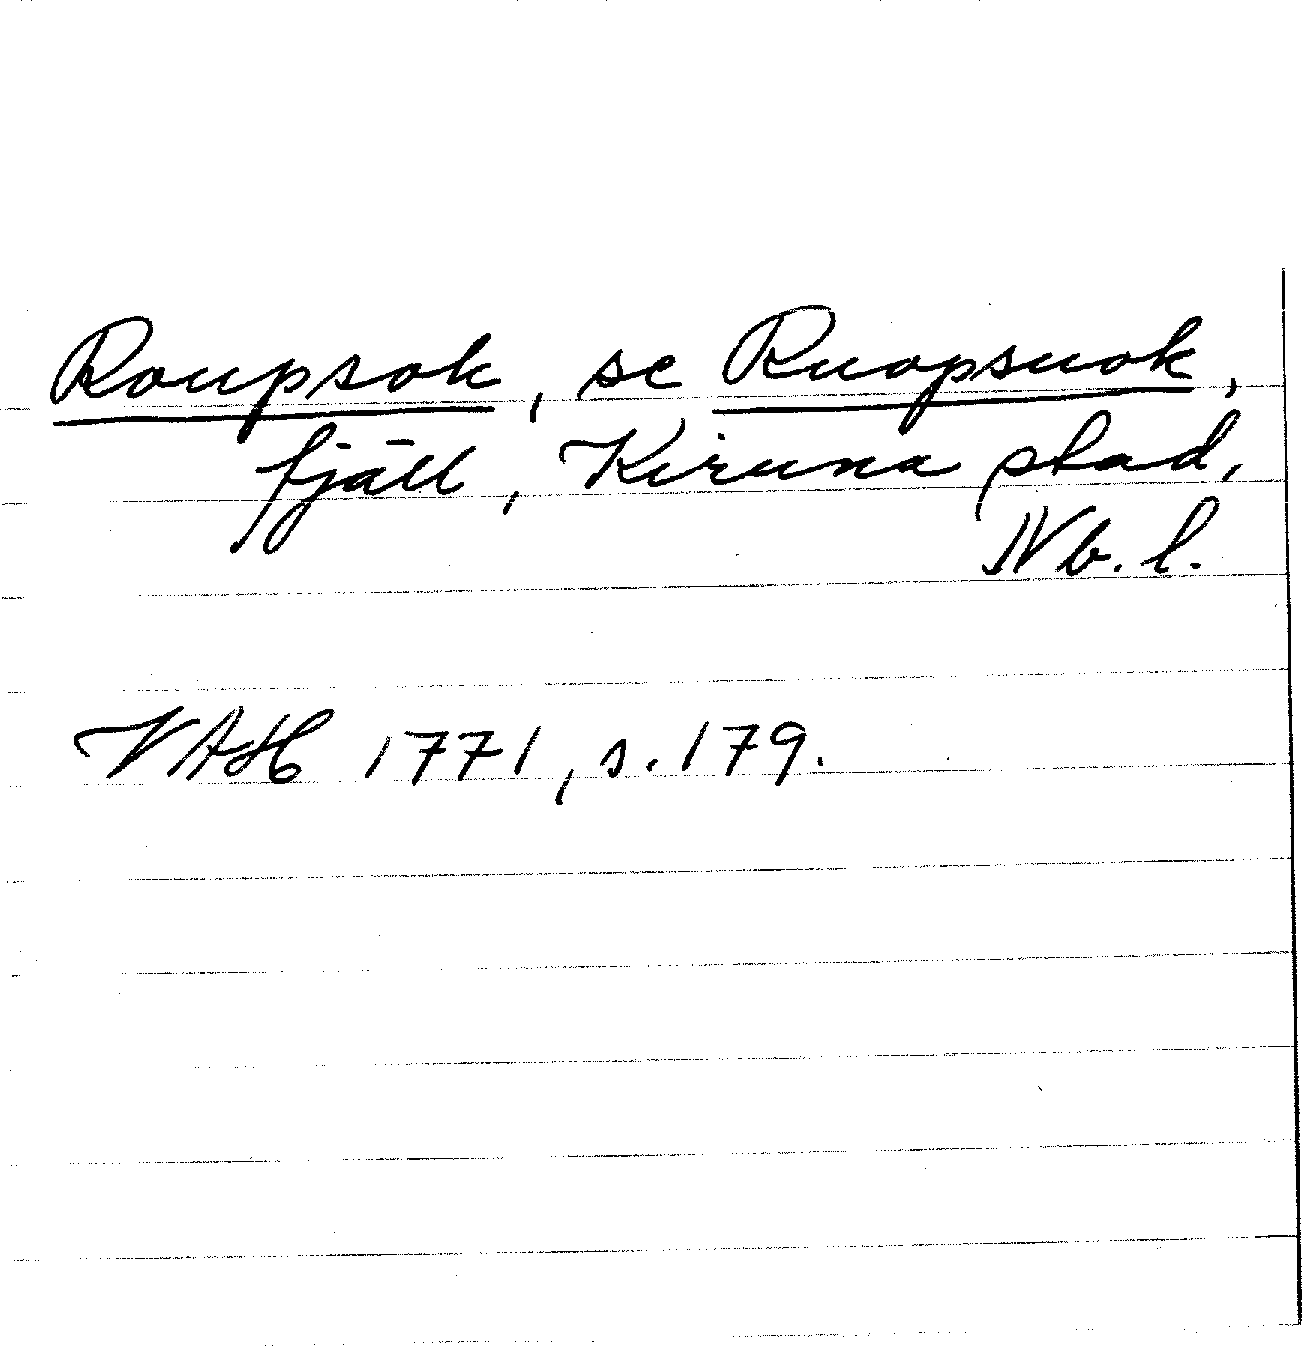 Roupsok, se Ruopsuok,
fjäll, Kiruna stad,
Nb. l.
VAH 1771, s. 179.